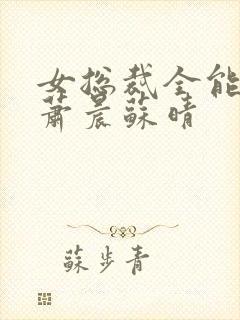 女总裁全能
萧晨苏晴
苏步青